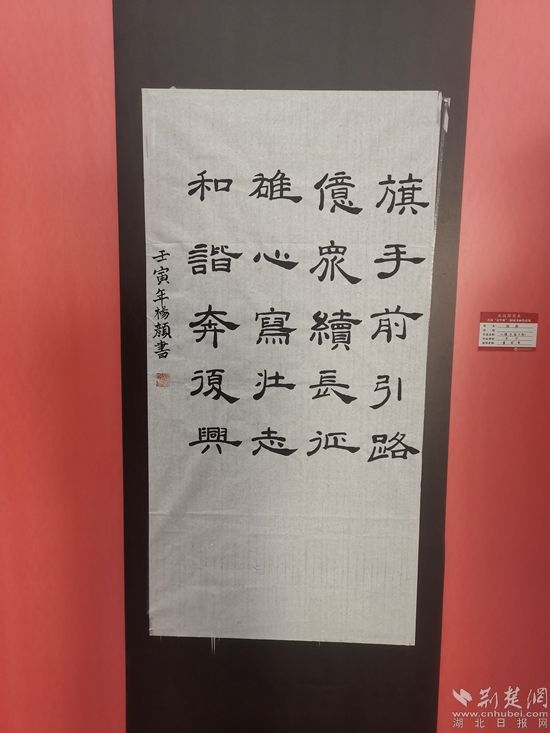 旗手前引路
億眾續長征
雄心寫壯志
和諧奔復興
壬寅年楊顏書
荆楚網
www.cnhubei.com
湖北日报网